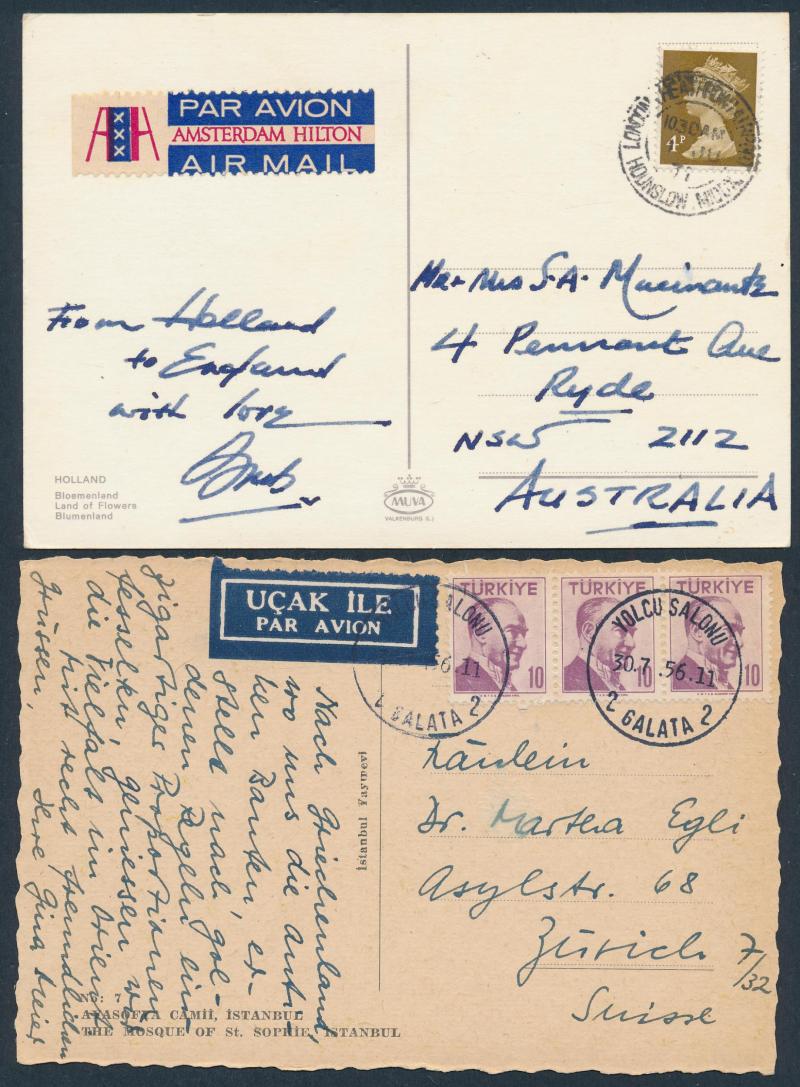 PAR AVION
AMSTERDAM HILTON
AIR MAIL
XXX
4P
LONDON
10 30 AM
HOUNSLOW MIDDX
From Holland
to England
with love
Mr + Mrs S.A.
4 Pennant Ave
Ryde
NSW 2112
AUSTRALIA
HOLLAND
Bloemenland
Land of Flowers
Blumenland
MUVA
VALKENBURG
UÇAK İLE
PAR AVION
TÜRKİYE
10
TÜRKİYE
10
TÜRKİYE
10
SALONU
56.11
2 GALATA 2
YOLCU SALONU
30.7.56.11
2 GALATA 2
Nach Griechenland,
wo uns die anti-
ken Bauten, er-
stellt nach gol-
denen Regeln ein-
zigartiger Proportionen
fesselten, geniessen wir
die Vielfalt im Orient
Mit recht freundlichen
Grüssen,
Ihre Gina Meier
İstanbul Yayınevi
Fräulein
Dr. Martha Egli
Asylstr. 68
Zürich 7/32
Suisse
No: 7
AYASOFYA CAMİİ, İSTANBUL
THE MOSQUE OF St. SOPHIE, İSTANBUL